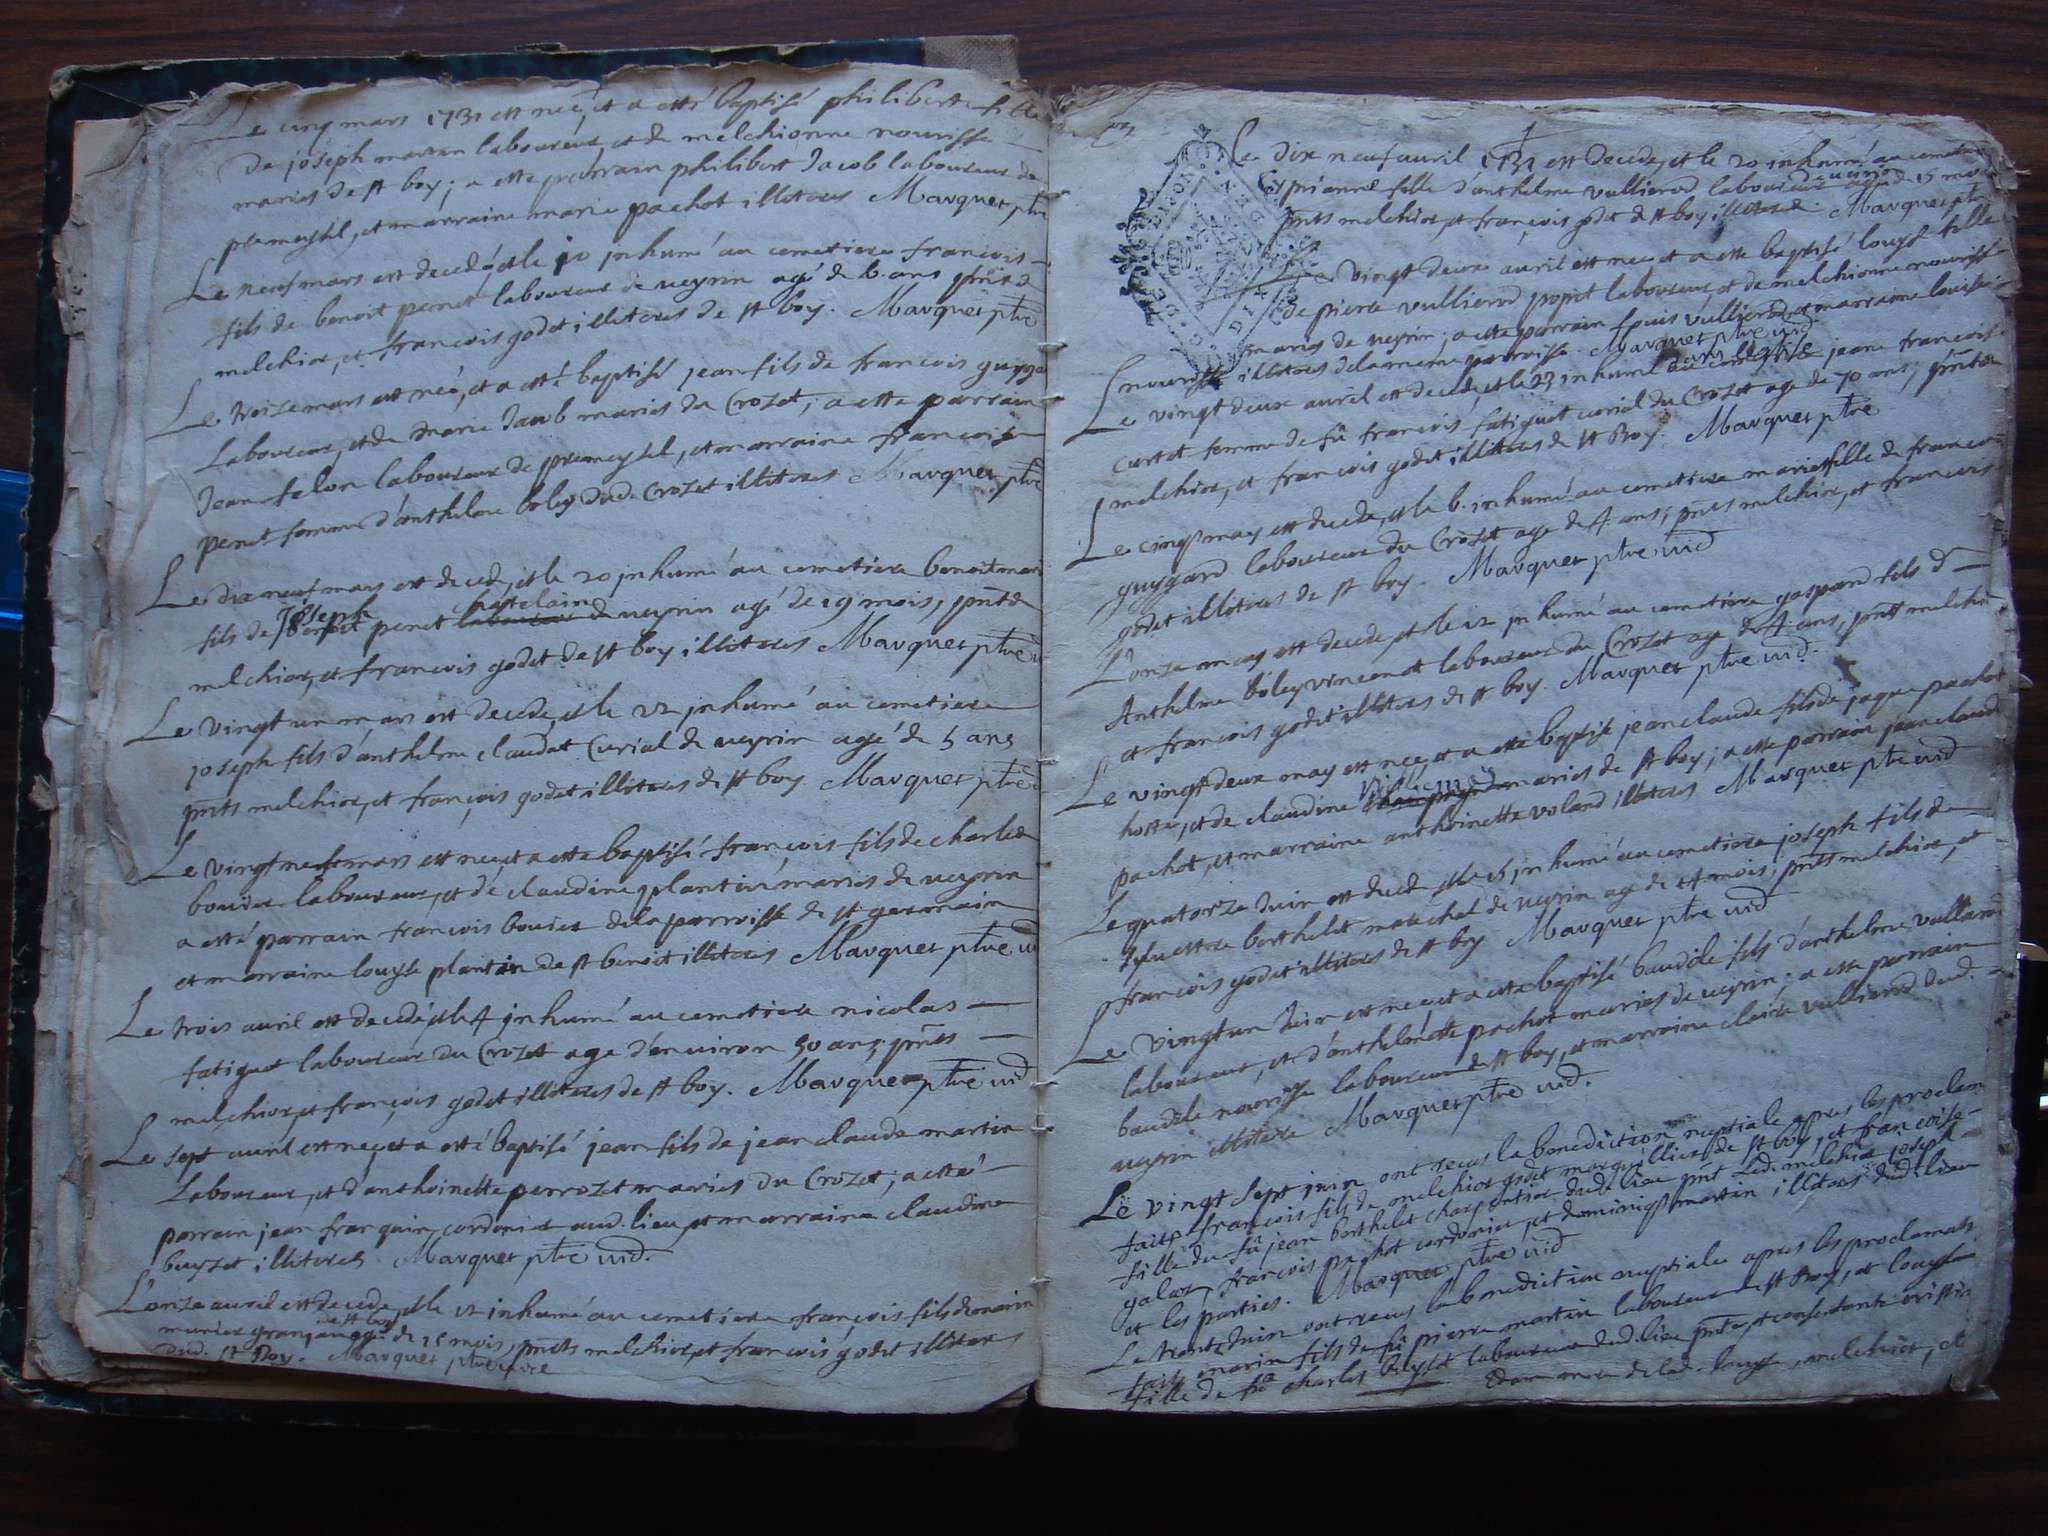 Le cinq mars 1731 est neé, et a esté baptisé philiberte fille
de joseph martin laboureur, et de melchionne nourisse
mariés de st boy; a esté parrain philibert Jacob laboureur de
premeysel, et marraine marie pachot illiteres Marquet ptre
Le neuf mars est decedé, et le 10 inhumé au cemetiere francois
fils de benoit penet laboureur de veyrin agé de 6. ans pnts
melchior, et francois godet illiteres de st boy. Marquet ptre
Le treize mars est neé, et a esté baptisé jean fils de francois guygard
laboureur, et de marie Jacob mariés du Crozet; a esté parrain
Jean falon laboureur de premeysel, et marraine francoise
penet femme d'anthelme boley dud. Crozet illiteres Marquet ptre
Le dix neuf mars est decedé, et le 20 inhumé au cemetiere benoit
fils de Joseph penet chatelain de veyrin agé de 19 mois, pnts
melchior, et francois godet de st boy illiteres Marquet ptre
Le vingt un mars est decedé, et le 22 inhumé au cemetiere
joseph fils d'anthelme claudat Curial de veyrin agé de 5 ans
pnts melchior, et françois godet illiteres de st boy. Marquet ptre
Le vingt neuf mars est neé, et a esté baptisé françois fils de charles
bouvier laboureur, et de claudine plantin mariés de veyrin
a esté parrain francois bouvier de la parroisse de st germain
et marraine louyse plantin de st benoit illiteres Marquet ptre vic
Le trois avril est decedé, et le 4 inhumé au cemetiere nicolas
fatiguet laboureur du Crozet age d'environ 50 ans; pnts
melchior, et françois godet illiteres de st boy. Marquet ptre vic
Le sept avril est neé, et a esté baptisé jean fils de jean claude martin
laboureur, et d'anthoinette perrozet mariés du Crozet; a esté
parrain jean franquin cordonier aud. lieu, et marraine claudine
buyset illiteres Marquet ptre vic.
L'onze avril est decedé, et le 12 inhumé au cemetiere françois fils de marin
munier granger de st boy agé de 15 mois, pnts melchior, et francois godet illiteres
dud. st Boy. Marquet ptre
Le dix neuf avril 1731 est decedé, et le 20 inhumé au cemetiere
fille d'anthelme vullierod laboureur de veyrin agé de 15 mois
pnts melchior, et françois godet de st boy illiteres. Marquet ptre
Le vingt deux avril est neé et a esté baptisé louyse fille
de pierre vullierod popet laboureur, et de melchionne nourisse
mariés de veyrin; a esté parrain louis vullierod, et marraine louise
nourisse illiteres de la meme parroisse. Marquet ptre vic.
Le vingt deux avril est decedé, et le 23 inhumé dans l'eglise jeane francoise
curtet femme de fû francois fatiguet curial du Crozet age de 70 ans; pnts
melchior, et francois godet illiteres de st Boy. Marquet ptre
Le cinq may est decedé, et le 6. inhumé au cemetiere marie fille de francois
guygard laboureur du Crozet age de 4 ans; pnts melchior, et francois
godet illiteres de st boy. Marquet ptre vic
L'onze may est decedé et le 12 inhumé au cemetiere gaspard fils d'
Anthelme boley vincenot laboureur du Crozet age de 4 ans, pnts melchior
et francois godet illiteres de st boy. Marquet ptre vic.
Le vingt deux may est neé, et a esté baptisé jean claude fils de jaque pachot
hoste, et de claudine mariés de st boy; a esté parrain jean claude
pachot, et marraine anthoinette voland illiteres Marquet ptre vic
Le quatorze Juin est decedé et le 15 inhumé au cemetiere joseph fils de
sylvestre berthelet marechal de veyrin age de 14 mois; pnts melchior, et
francois godet illiteres de st boy Marquet ptre vic
Le vingt un Juin est neé, et a esté baptisé baudile fils d'anthelme vulliarod
laboureur, et d'anthelmette pachot mariés de veyrin; a esté parrain
baudile nourisse laboureur de st boy, et marraine claire vullierod dud.
veyrin illiteres Marquet ptre vic.
Le vingt sept juin ont receu la benediction nuptiale apres les proclam
faites francois fils de melchior godet marquillier de st boy, et francoise
fille du fû jean berthelet charpentier dud. lieu pnts led. melchior, joseph
galar, francois pachot cordonier, et dominique martin illiteres dud. lieu
et les parties. Marquet ptre vic
Le trente Juin ont receu la benediction nuptiale apres les proclamat
faites marin fils de fû pierre martin laboureur de st Boy, et louyse
fille de fû charles buyset laboureur dud. lieu pnte, et consentante
mere de lad. louyse, melchior, et